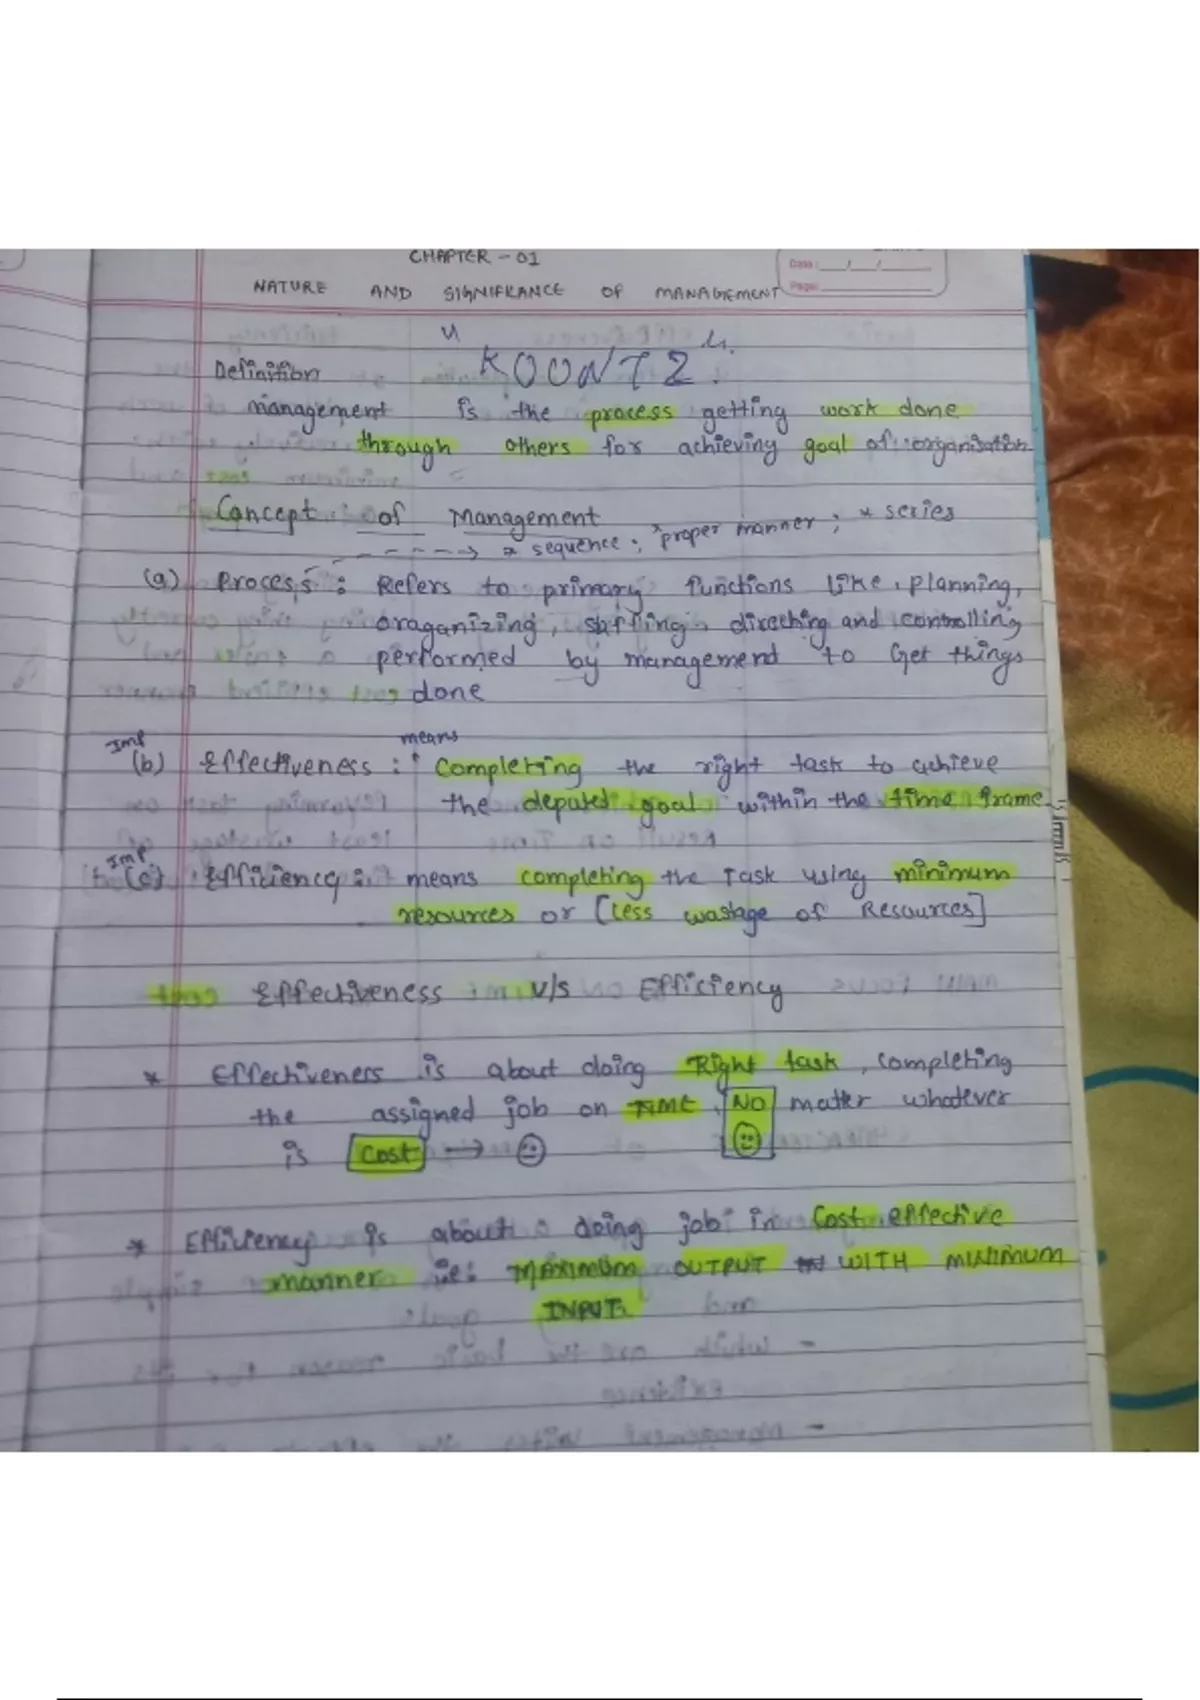 CHAPTER - 01
Date: __/__/____
NATURE AND SIGNIFICANCE OF MANAGEMENT
Page:
Definition "KOONTZ".
management is the process getting work done
through others for achieving goal of organisation
Concept of Management
* sequence; *proper manner; * series
(a) Process: Refers to primary functions like, planning,
oraganizing, staffing, direching and controlling
performed by managemend to Get things
done
Imp means
(b) Effectiveness: Completing the right task to achieve
the deputed goal within the time frame
Imp
(c) Efficiency: means completing the Task using minimum
resources or [Less wastage of Resources]
Effectiveness v/s Efficiency
* Effectiveness is about doing Right task, completing
the assigned job on TIME, NO matter whatever
is Cost → 😐 🙂
* Efficiency is about doing job in Cost effective
manner ie: MAXIMUM OUTPUT WITH MINIMUM
INPUT.